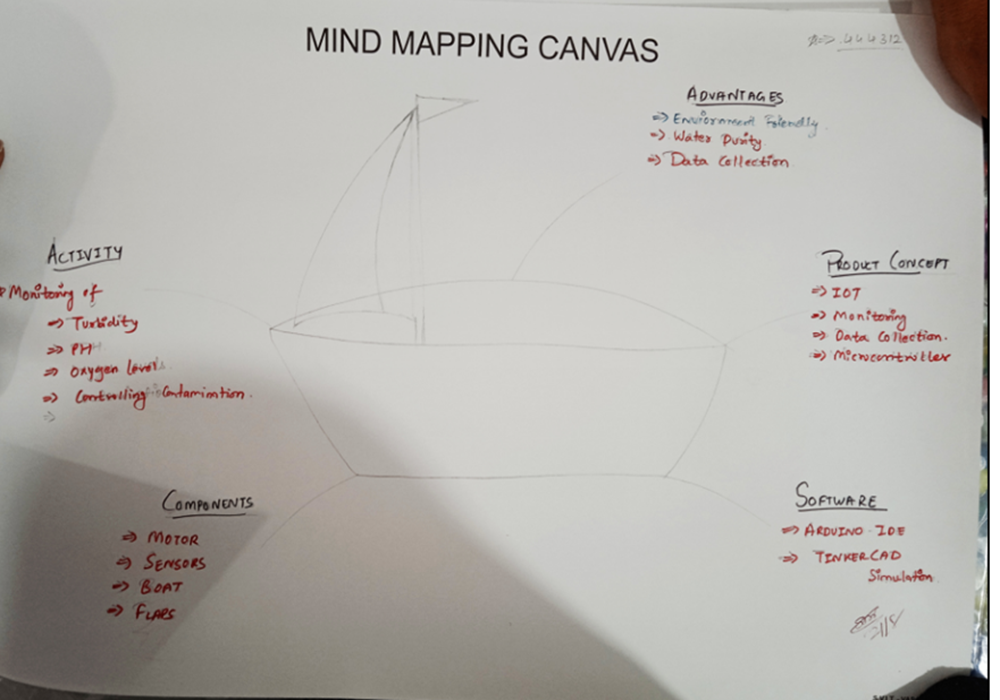 MIND MAPPING CANVAS
444312
ADVANTAGES
⇒ Enviornment Friendly.
⇒ Water Purity.
⇒ Data Collection.
ACTIVITY
Monitoring of
⇒ Turbidity
⇒ PH
⇒ Oxygen level
⇒ Controlling Contamination.
⇒
PRODUCT CONCEPT
⇒ IOT
⇒ Monitoring
⇒ Data Collection.
⇒ Microcontroller
COMPONENTS
⇒ MOTOR
⇒ SENSORS
⇒ BOAT
⇒ FLAPS
SOFTWARE
⇒ ARDUINO IDE
⇒ TINKERCAD
Simulation.